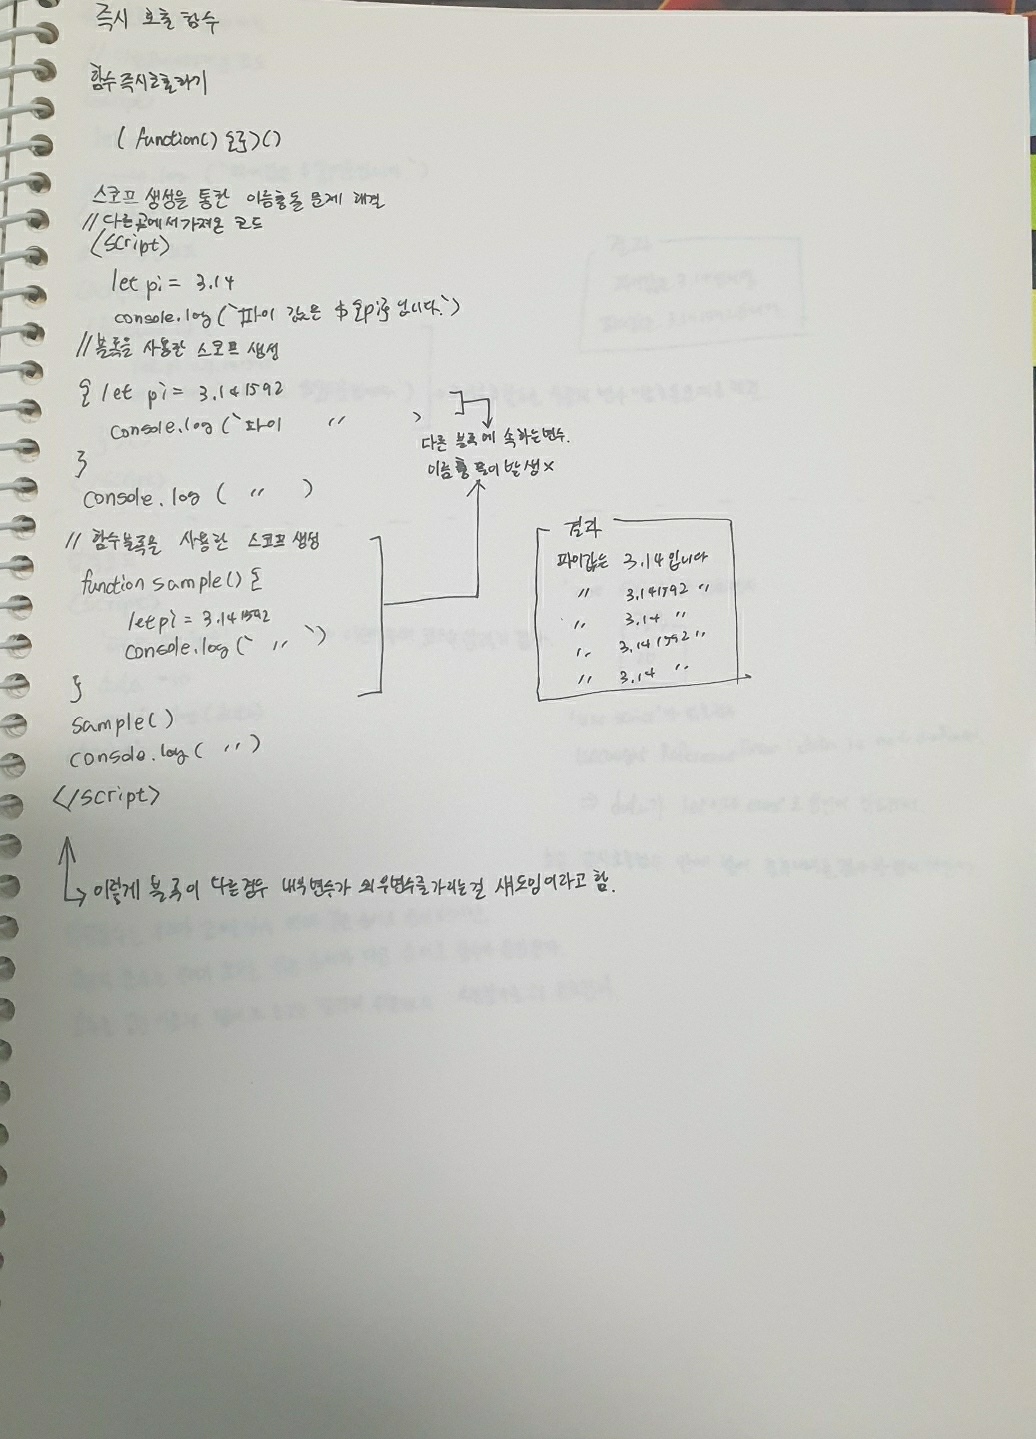 즉시 호출 함수
함수 즉시호출하기
(function() {})()
스코프 생성을 통한 이름충돌 문제 해결
// 다른곳에서 가져온 코드
<script>
let pi = 3.14
console.log(`파이 값은 ${pi}입니다.`)
// 블록을 사용한 스코프 생성
{ let pi = 3.141592
console.log(`파이 〃 )
}
console.log( 〃 )
다른 블록에 속하는 변수.
이름 충돌이 발생 x
// 함수블록을 사용한 스코프 생성
function sample() {
let pi = 3.141592
console.log(` 〃 `)
}
sample()
console.log( 〃 )
</script>
결과
파이값은 3.14입니다
〃 3.141592 〃
〃 3.14 〃
〃 3.141592 〃
〃 3.14 〃
이렇게 블록이 다른경우 내부변수가 외부변수를 가리는걸 섀도잉이라고 함.